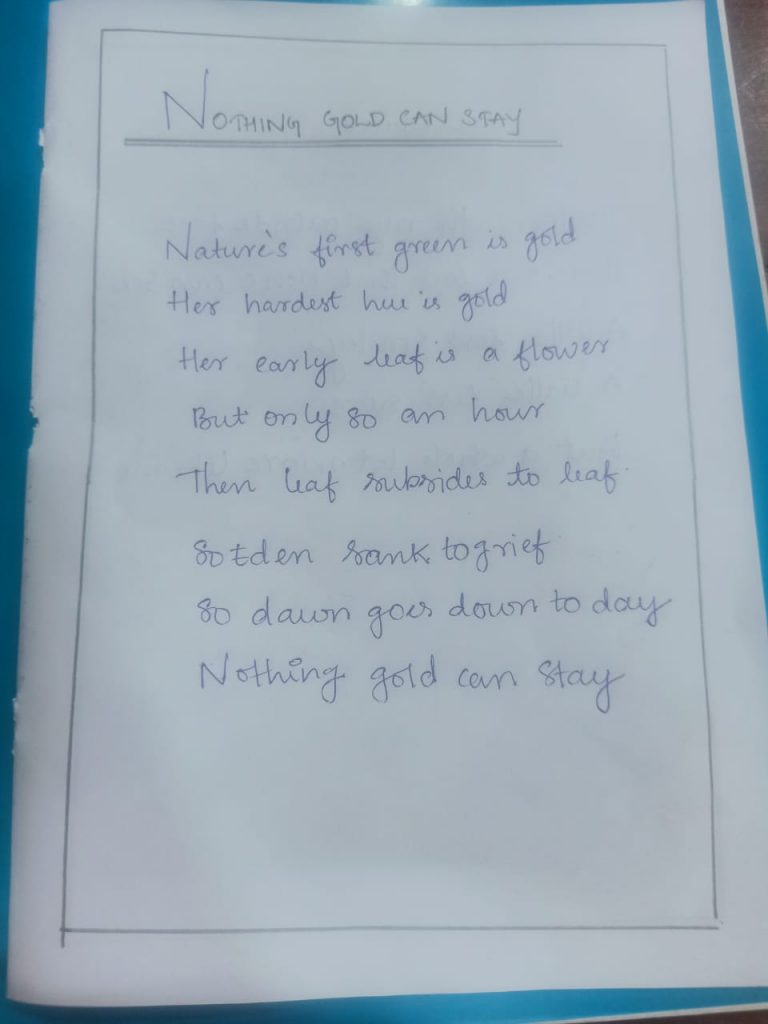 NOTHING GOLD CAN STAY
Nature's first green is gold
Her hardest hue is gold
Her early leaf is a flower
But only so an hour
Then leaf subsides to leaf.
So Eden sank to grief
So dawn goes down to day
Nothing gold can stay